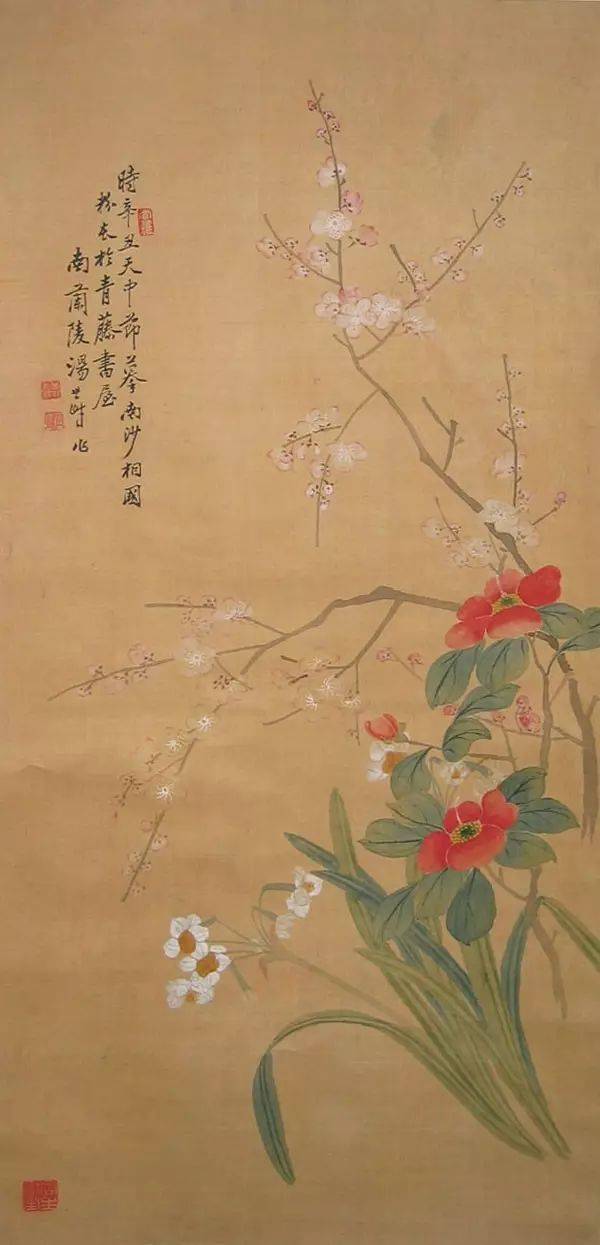 時辛丑天中節摹南沙相國
粉本於青藤書屋
南蘭陵湯世澍作